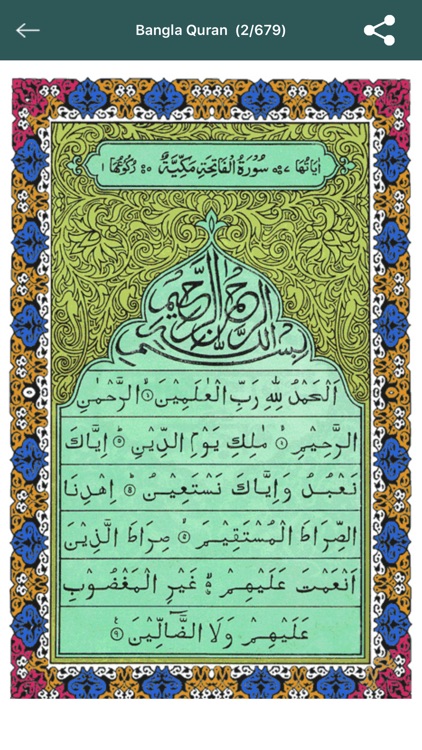 Bangla Quran (2/679)
اٰيَاتُهَا ٧ سُوْرَةُ الْفَاتِحَةِ مَكِّيَّةٌ ٥ رُكُوْعُهَا ١
بِسْمِ اللّٰهِ الرَّحْمٰنِ الرَّحِيْمِ
اَلْحَمْدُ لِلّٰهِ رَبِّ الْعٰلَمِيْنَ ۙ الرَّحْمٰنِ
الرَّحِيْمِ ۙ مٰلِكِ يَوْمِ الدِّيْنِ ؕ اِيَّاكَ
نَعْبُدُ وَاِيَّاكَ نَسْتَعِيْنُ ؕ اِهْدِنَا
الصِّرَاطَ الْمُسْتَقِيْمَ ۙ صِرَاطَ الَّذِيْنَ
اَنْعَمْتَ عَلَيْهِمْ ۙ غَيْرِ الْمَغْضُوْبِ
عَلَيْهِمْ وَلَا الضَّآلِّيْنَ